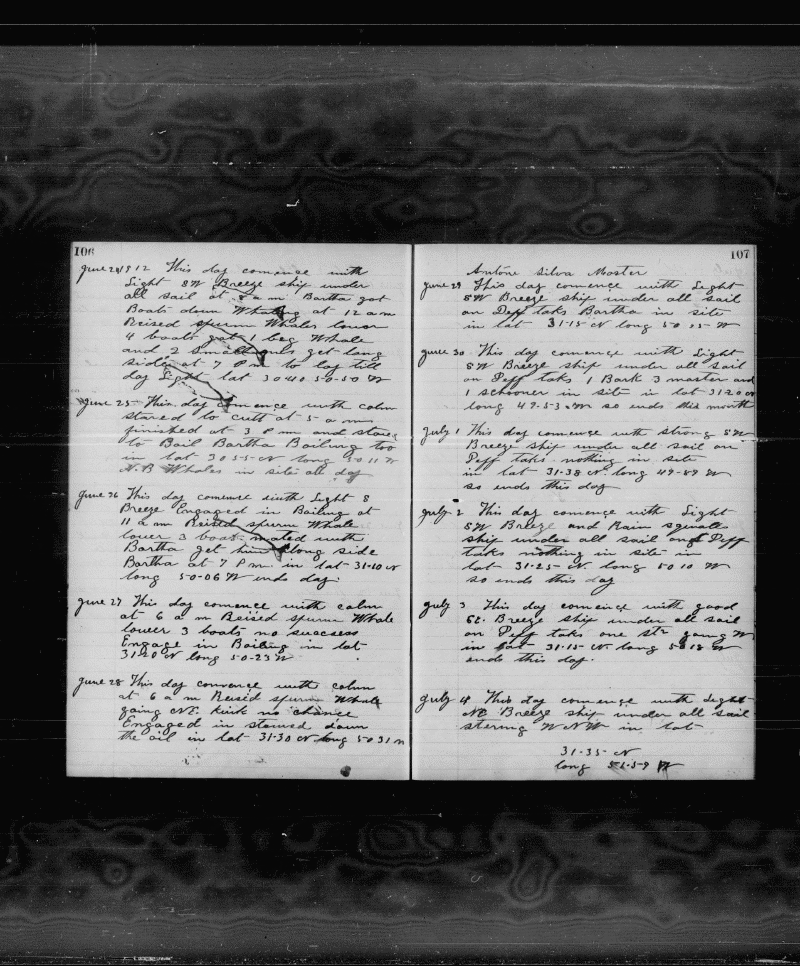 106
June 24 1912 This day comence with
Light SW Breeze ship under
all sail at 8 a m Bartha got
Boats down Whaling at 12 a m
Reised spurm Whales lower
4 boats got 1 beg Whale
and 2 small ones get long
side at 7 P m to lay till
day Light lat 30-40 50-50 W
June 25 This day comence with calm
stared to cutt at 5 a m
finished at 3 P m and stared
to Bail Bartha Bailing too
in lat 30 55 N long 50 11 W
N.B Wholes in site all day
June 26 This day comense with Light S
Breze Engaged in Bailing at
11 a m Reised spurm Whale
lower 3 boat mated with
Bartha get him along side
Bartha at 7 P m in lat 31-10 N
long 50-06 W ends day.
June 27 This day comence with calm
at 6 a m Reised spurm Whale
lower 3 boats no success
Engage in Bailing in lat
31-20 N long 50-23 W
June 28 This day comence with calm
at 6 a m Reised spurm Whale
going NE. kuik no chance
Engaged in stowed down
the oil in lat 31-30 N long 50 31 W
107
Antone Silva Master
June 29 This day comence with Light
SW Breeze ship under all sail
on Deff taks Bartha in site
in lat 31-15 N long 50 15 W
June 30 This day comence with Light
SW Breeze ship under all sail
on Deff taks 1 Bark 3 master and
1 schooner in site in lat 31-20 N
long 49-53 W so ends this month
July 1 This day comence with strong SW
Breeze ship under all sail on
Deff taks nothing in site
in lat 31-38 N. long 49-59 W
so ends this day
July 2 This day comence with Light
SW Breeze and Rain squalls
ship under all sail on Deff
taks nothing in site in
lat 31-25 N long 50 10 W
so ends this day
July 3 This day comence with good
SE. Breeze ship under all sail
on Deff taks one str going W
in lat 31-15 N long 50 18 W
ends this day.
July 4 This day comence with Light
NE Breeze ship under all sail
stering W N W in lat
31-35 N
long W